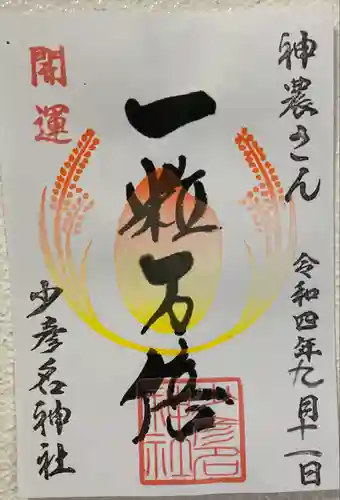 神農さん
令和四年九月十一日
一粒万倍
開運
少彦名神社
少彦名
神社